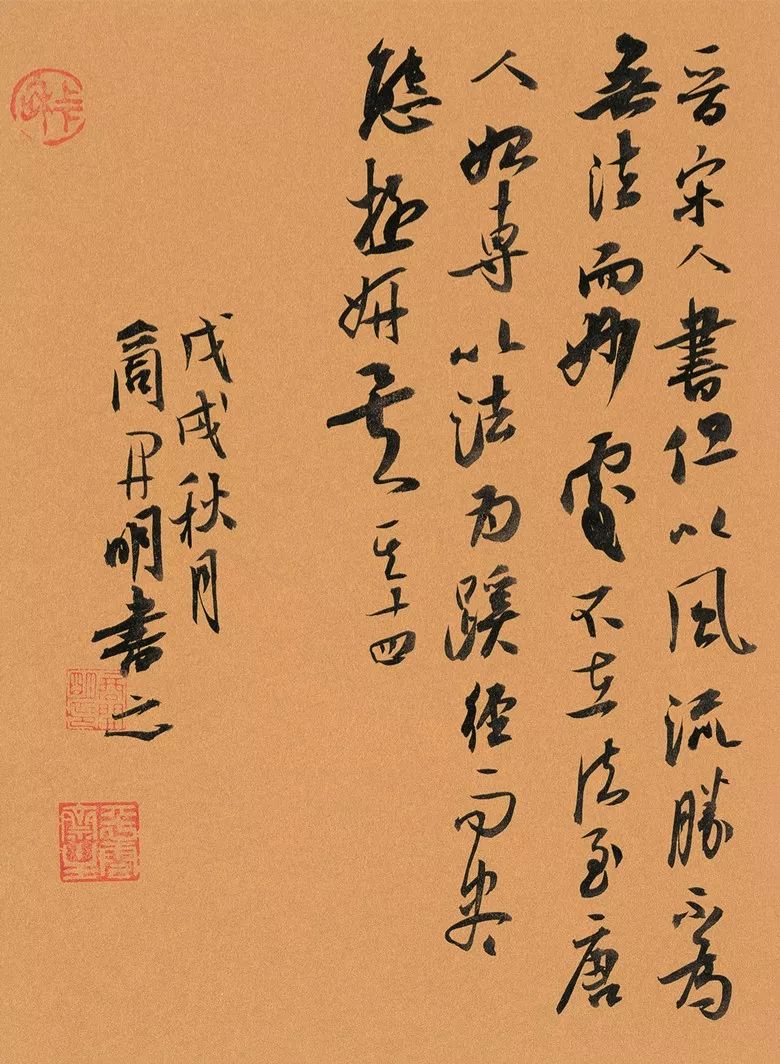 晋宋人書但以風流勝不為
無法而妙處不在法至唐
人始專以法為蹊徑而尽
態極妍矣 其十四
戊戌秋月
商开明書之